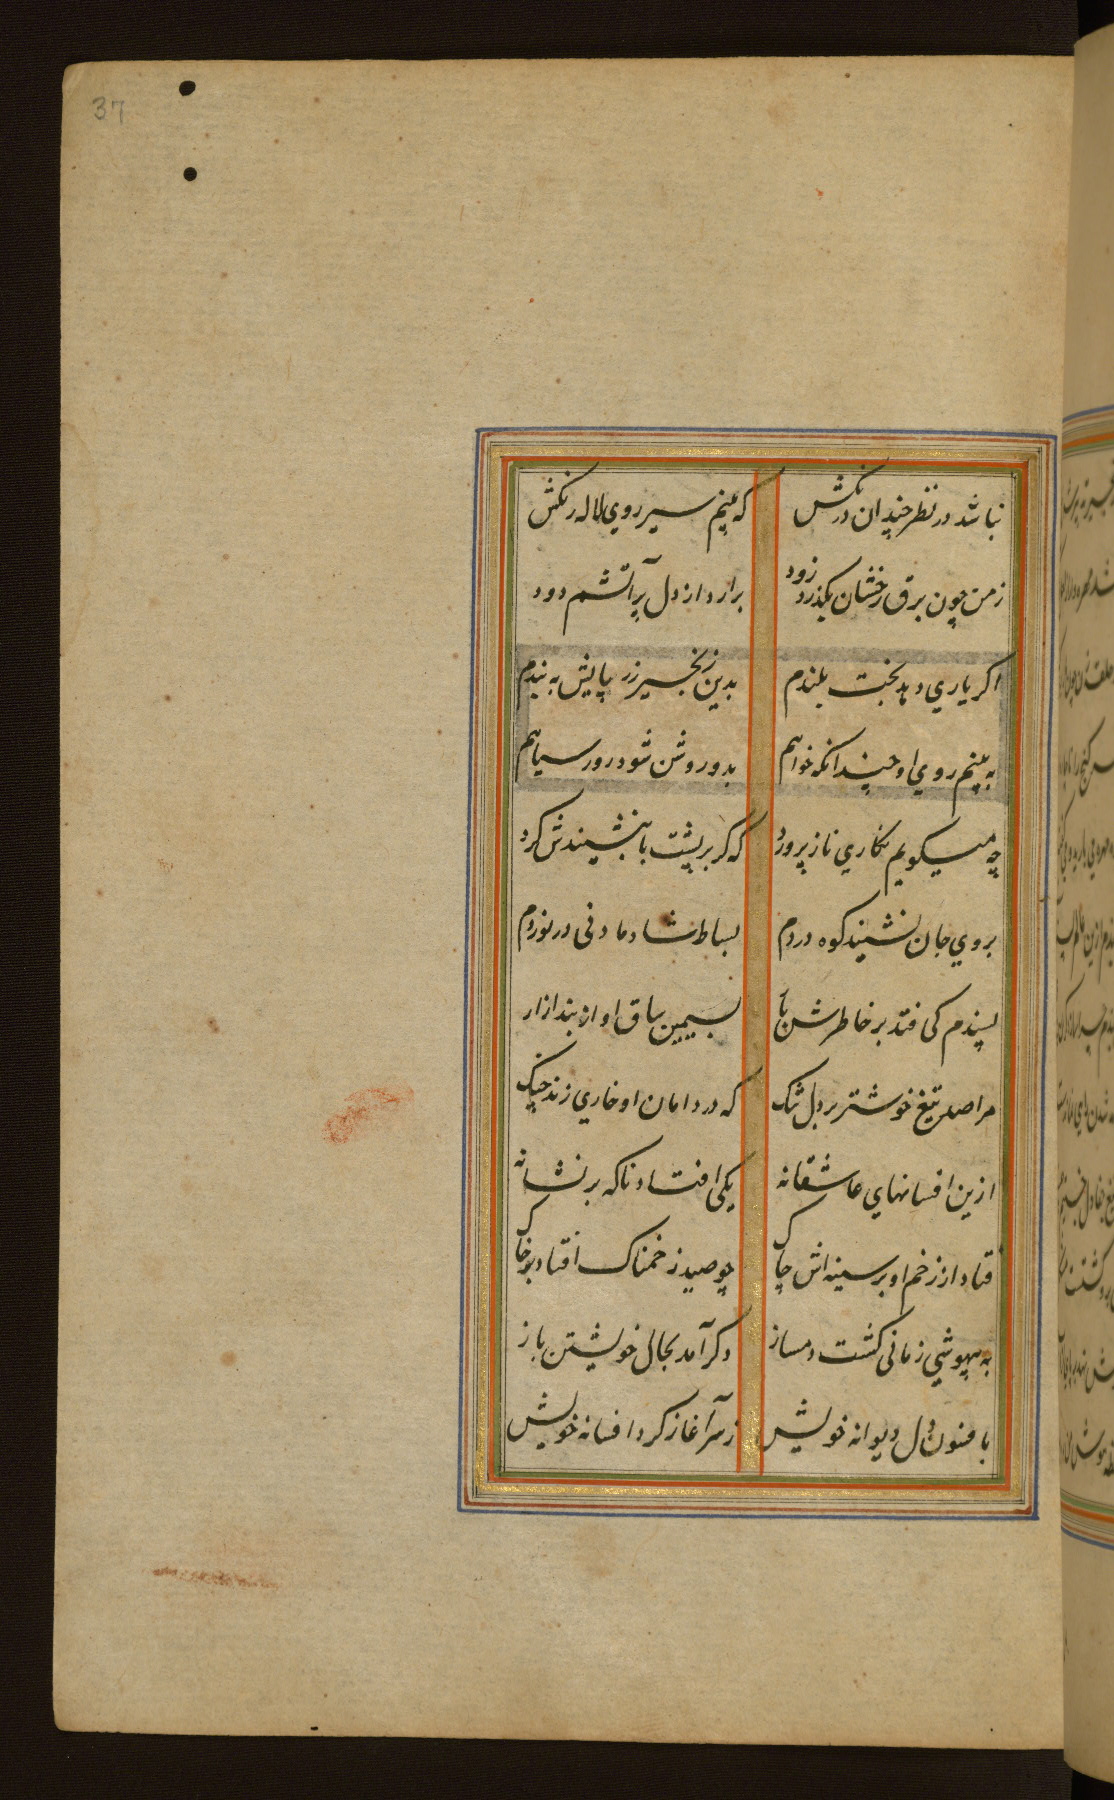 37
نباشد در نظر چندان درنکش
که بینم سیر روی لاله رنکش
ز من چون برق رخشان بکذرد زود
برارد از دل پر آتشم دود
اکر یاری دهد بخت بلندم
بدین زنجیر زر پایش به بندم
به بینم روی او چندانکه خواهم
بدو روشن شود روز سیاهم
چه میکویم نکاری ناز پرورد
که کر بر پشت پا بنشیندش کرد
بروی جان نشیند کوه دردم
بساط شادمانی در نوردم
پسندم کی فتد بر خاطرش بار
بسیمین ساق او از بند ازار
مرا صد تیغ خوشتر بر دل تنک
که در دامان او خاری زند چنک
ازین افسانهای عاشقانه
یکی افتاد ناکه بر نشانه
فتاد از زخم او بر سینه اش چاک
چو صید زخمناک افتاد بر خاک
به بیهوشی زمانی کشت دمساز
دکر آمد بحال خویشتن باز
بافسون دل دیوانه خویش
ز سر آغاز کرد افسانه خویش